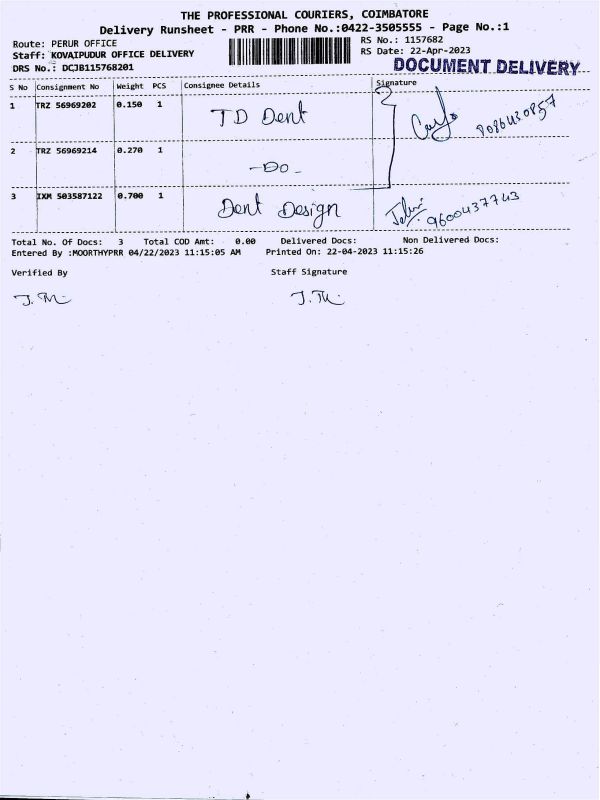 THE PROFESSIONAL COURIERS, COIMBATORE
Delivery Runsheet - PRR - Phone No.:0422-3505555 - Page No.:1
Route: PERUR OFFICE
RS No.: 1157682
Staff: KOVAIPUDUR OFFICE DELIVERY
RS Date: 22-Apr-2023
DRS No.: DCJB115768201
DOCUMENT DELIVERY
S No Consignment No Weight PCS Consignee Details Signature
1 TRZ 56969202 0.150 1 TD Dent 8086430857
2 TRZ 56969214 0.270 1 -Do-
3 IXM 503587122 0.700 1 Dent Design 9600437743
Total No. Of Docs: 3 Total COD Amt: 0.00 Delivered Docs: Non Delivered Docs:
Entered By :MOORTHYPRR 04/22/2023 11:15:05 AM Printed On: 22-04-2023 11:15:26
Verified By Staff Signature